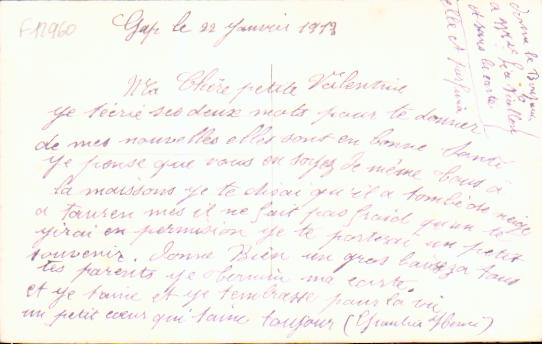 F12960
Gap le 22 Janvier 1913
Ma Chère petite Valentine
Je técrié ses deux mots pour te donner
de mes nouvelles elles sont en bonne Santé
Je pense que vous en soyez de même tous à
la maissons je te dirai qu'il a tombé de neige
a mes il ne fait pas fraid qu'un te
yirai en permision ye te porterai un petit
souvenir. Donne Bien un gros a tous
tes parents ye ma carte.
et ye taime et ye tembrasse pour la vie
un petit cœur qui taime toujour (
donne le
a
et sans la carte